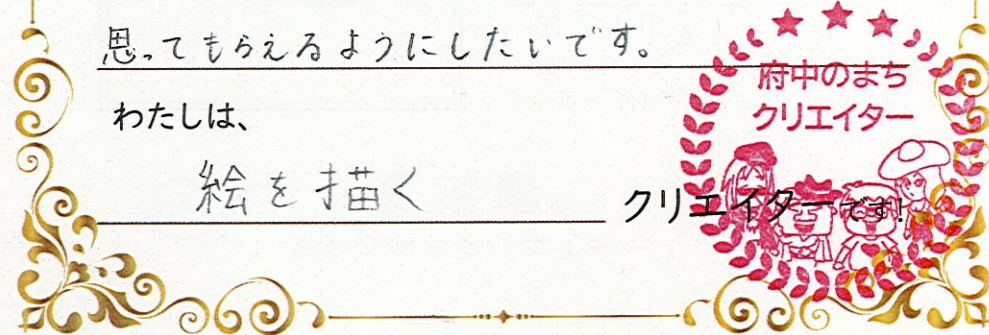 思ってもらえるようにしたいです。
府中のまち
クリエイター
わたしは、
絵を描く クリエイターです!